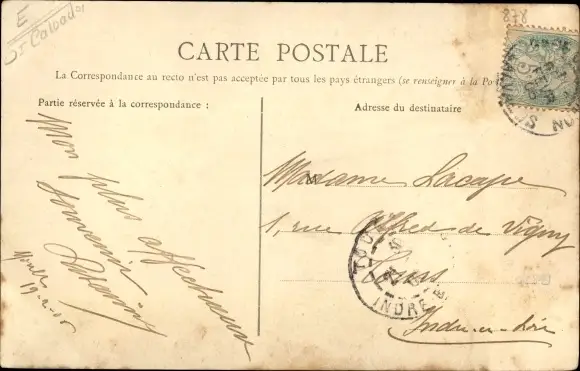 E
St Calvados
878
CARTE POSTALE
La Correspondance au recto n'est pas acceptée par tous les pays étrangers (se renseigner à la Po
Partie réservée à la correspondance :
Adresse du destinataire
Mon plus affectueux
souvenir
19-2-05
Madame Lacape
1, rue Alfred de Vigny
Tours
Indre-et-Loire
TOU
INDRE